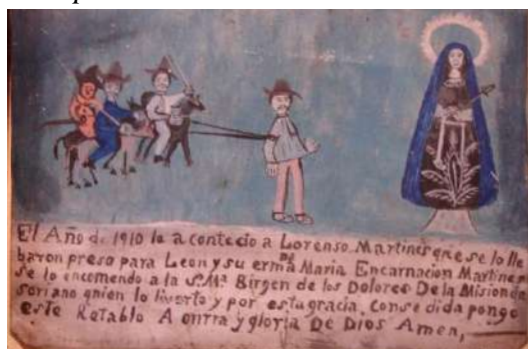 El Año de 1910 le a contecio a Lorenso Martines que se lo lle
baron preso para Leon y su ermna Maria Encarnacion Martines
se lo encomendo a la Sma Birgen de los Dolores De la Mision de
soriano quien lo liverto y por esta gracia Consedida pongo
este Retablo A onrra y gloria De Dios Amen,